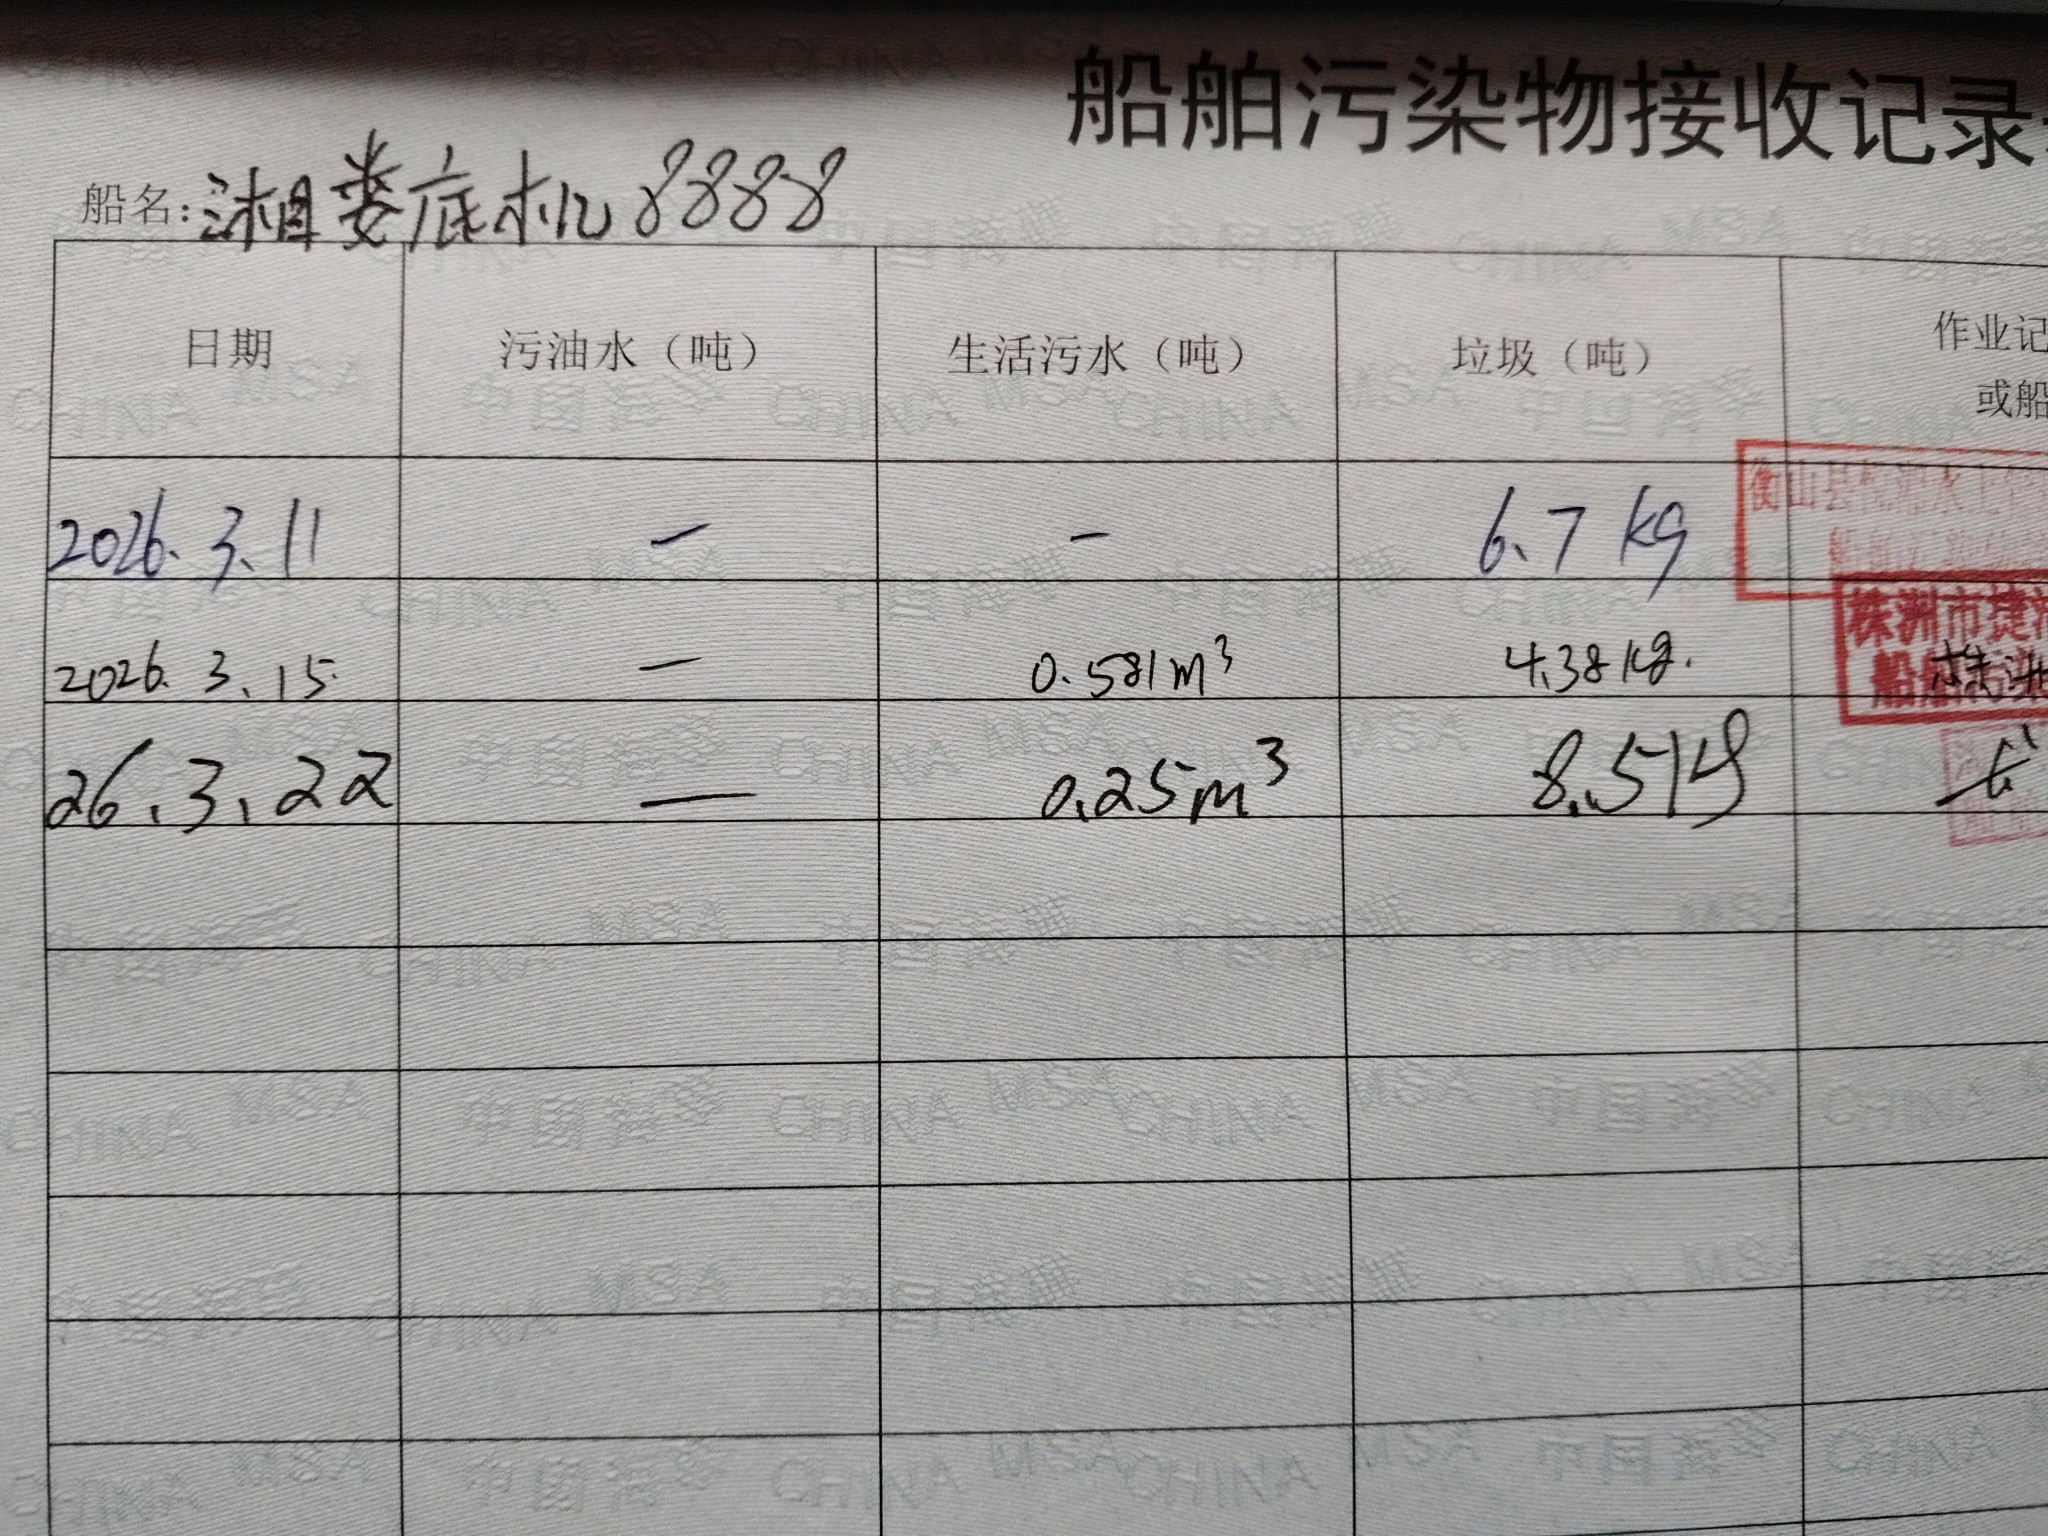 船舶污染物接收记录
船名:湘娄底机8888
日期 污油水（吨） 生活污水（吨） 垃圾（吨） 作业记
或船
2026.3.11 — — 6.7kg
衡山县
2026.3.15 — 0.581m³ 4.38kg.
株洲市捷
船舶污染
株洲
26.3.22 — 0.25m³ 8.5kg